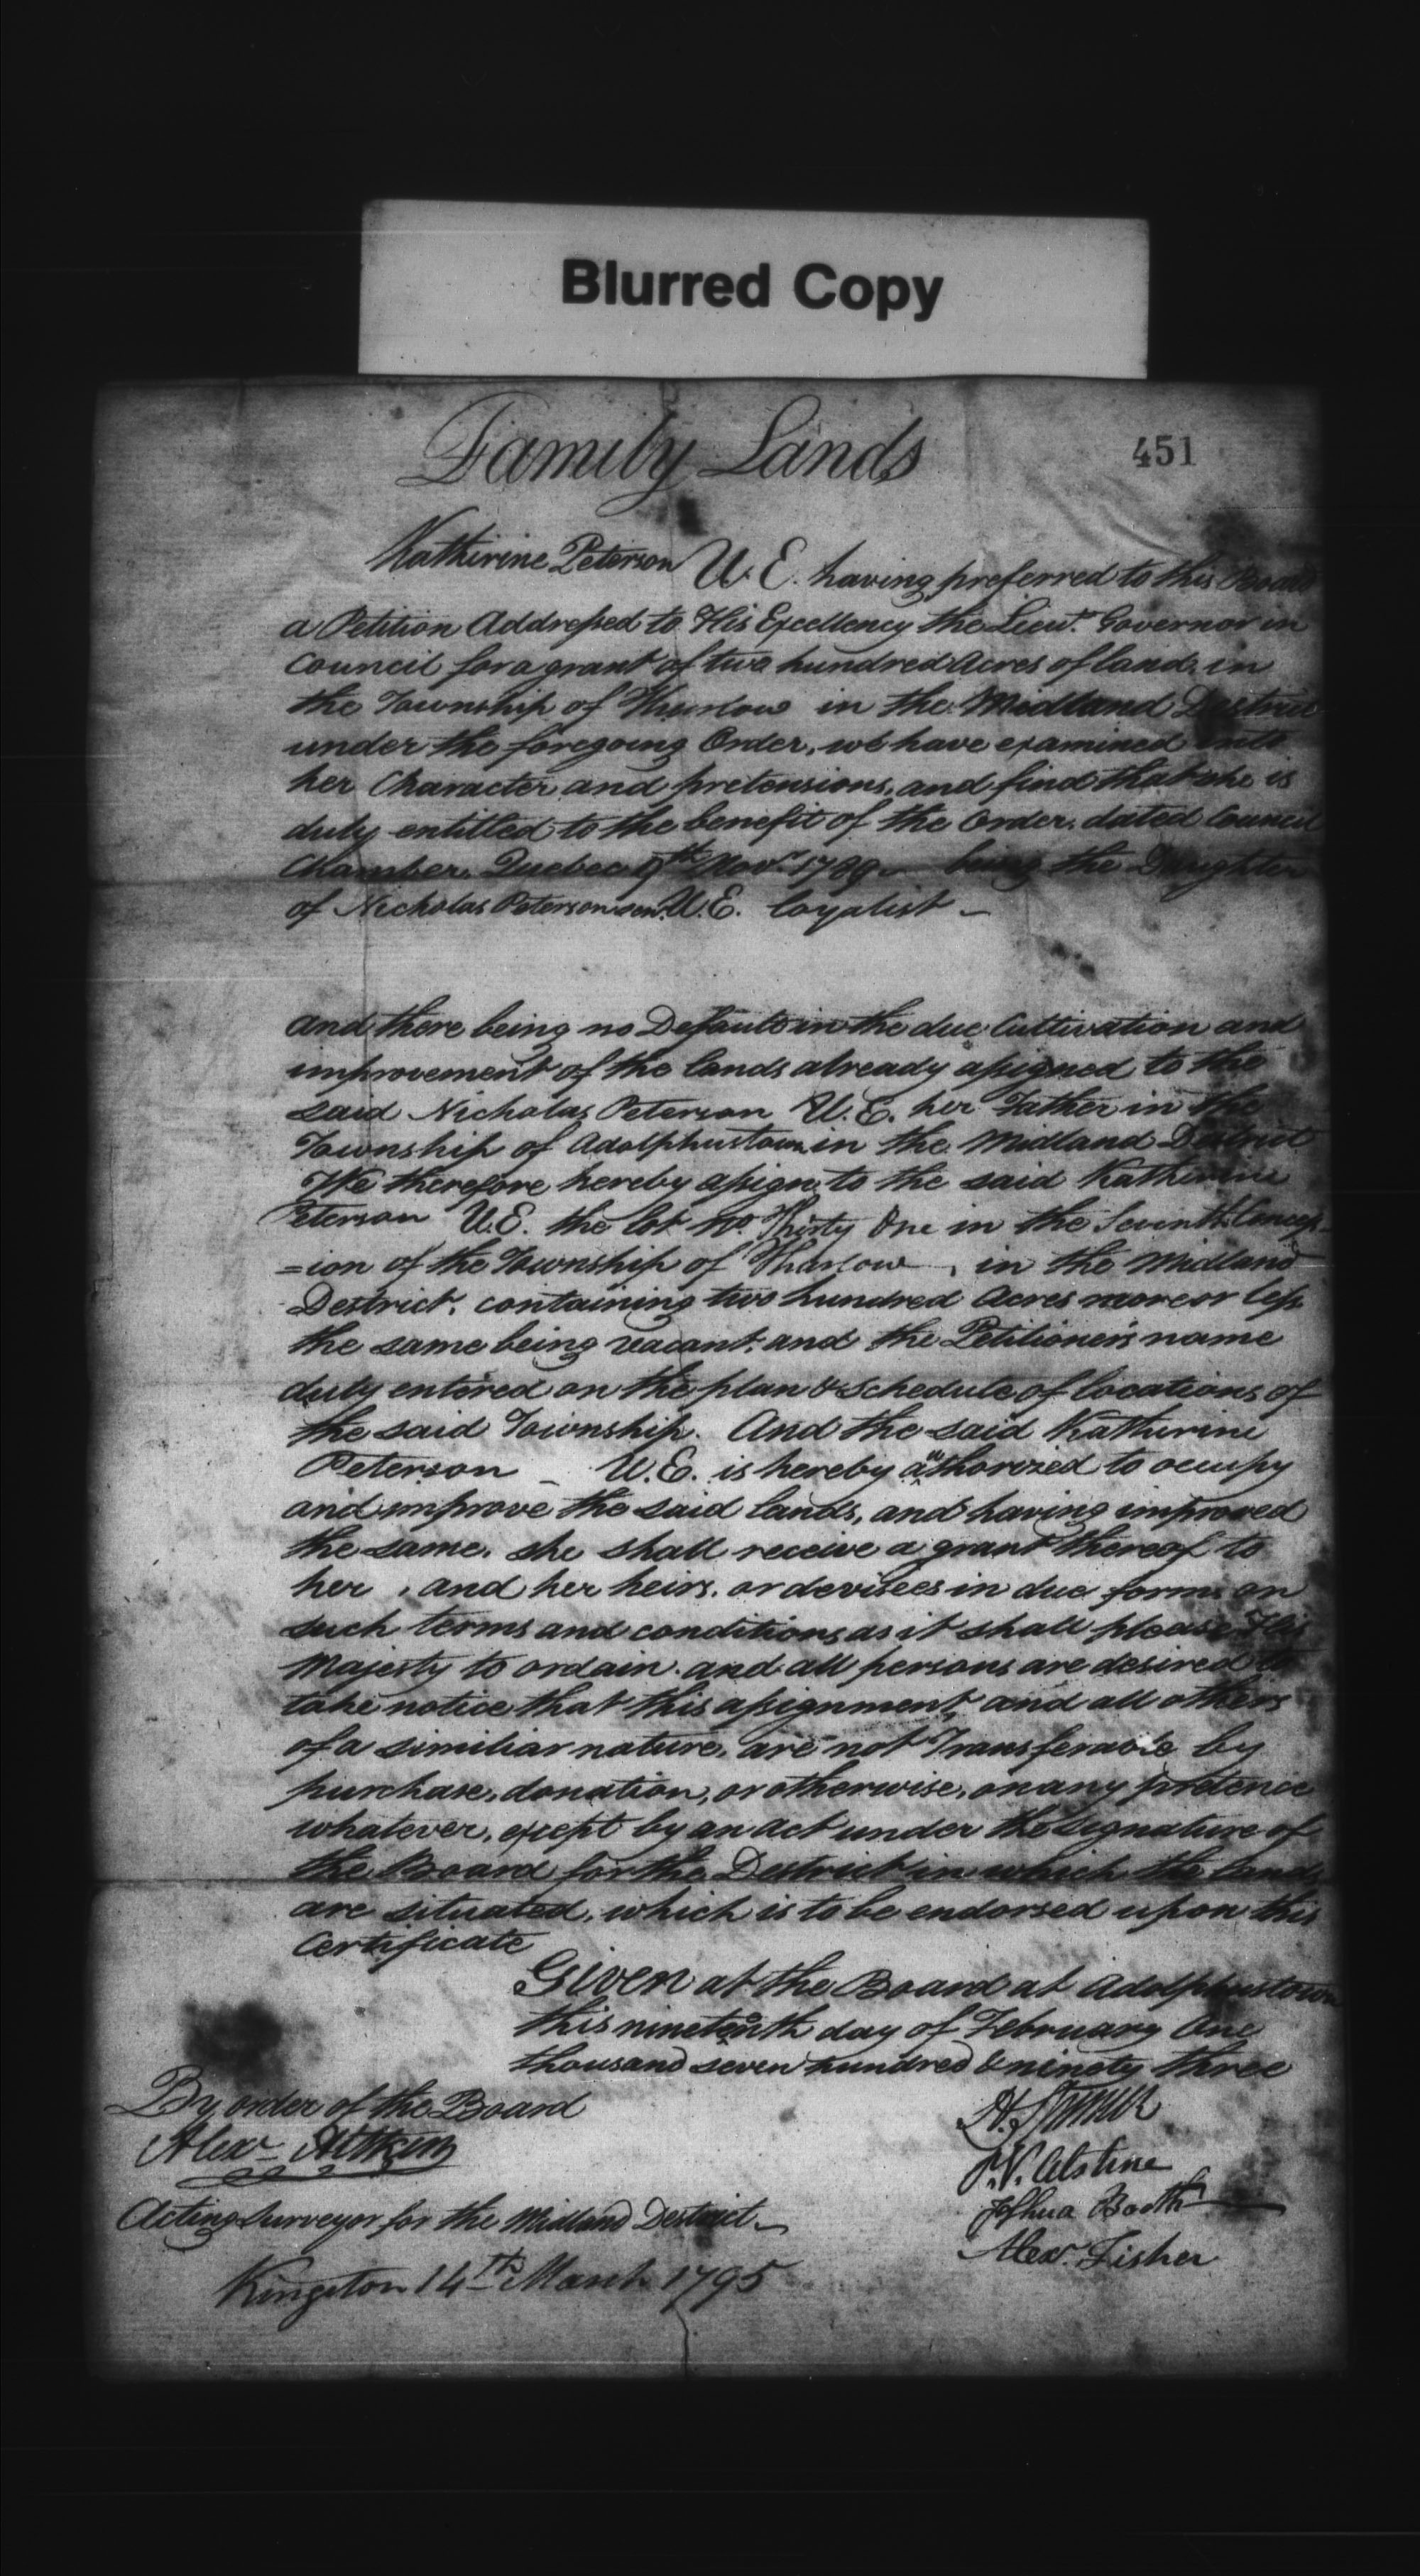 Blurred Copy
Family Lands
451
Katherine Peterson U.E. having preferred to this Board
a Petition Addressed to His Excellency the Lieut. Governor in
Council for a grant of two hundred Acres of land, in
the Township of Thurlow in the Midland District
under the foregoing Order, we have examined into
her Character and pretensions, and find that she is
duly entitled to the benefit of the Order, dated Council
Chamber, Quebec 9th Nov. 1789 - being the Daughter
of Nicholas Peterson sen. U.E. loyalist -
and there being no Default in the due Cultivation and
improvement of the lands already assigned to the
said Nicholas Peterson U.E. her Father in the
Township of Adolphustown in the Midland District
We therefore hereby assign to the said Katherine
Peterson U.E. the lot No. Thirty One in the Seventh Concess
=ion of the Township of Thurlow, in the Midland
Destrict, containing two hundred Acres more or less
the same being vacant, and the Petitioner's name
duly entered on the plan & schedule of locations of
the said Township. And the said Katherine
Peterson - U.E. is hereby authorized to occupy
and improve the said lands, and having improved
the same, she shall receive a grant thereof to
her, and her heirs, or devisees in due form, on
such terms and conditions as it shall please His
Majesty to ordain. and all persons are desired to
take notice that this assignment, and all others
of a similiar nature, are not Transferable by
purchase, donation, or otherwise, on any pretence
whatever, except by an Act under the signature of
the Board for the Destrict in which the lands
are situated, which is to be endorsed upon this
Certificate
Given at the Board at Adolphustown
this nineteenth day of February One
thousand seven hundred & ninety three
By order of the Board
Alexr. Aitkin
Acting Surveyor for the Midland Destrict -
Kingston 14th March 1795
P.V. Alstine
Joshua Booth
Alexr. Fisher